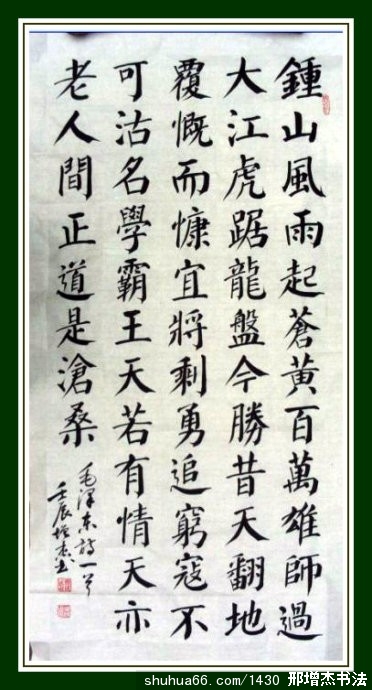 鍾山風雨起蒼黄百萬雄師過
大江虎踞龍盤今勝昔天翻地
覆慨而慷宜將剩勇追窮寇不
可沽名學霸王天若有情天亦
老人間正道是滄桑
毛泽东诗一首
壬辰增杰书
shuhua66.com/1430 邢增杰书法